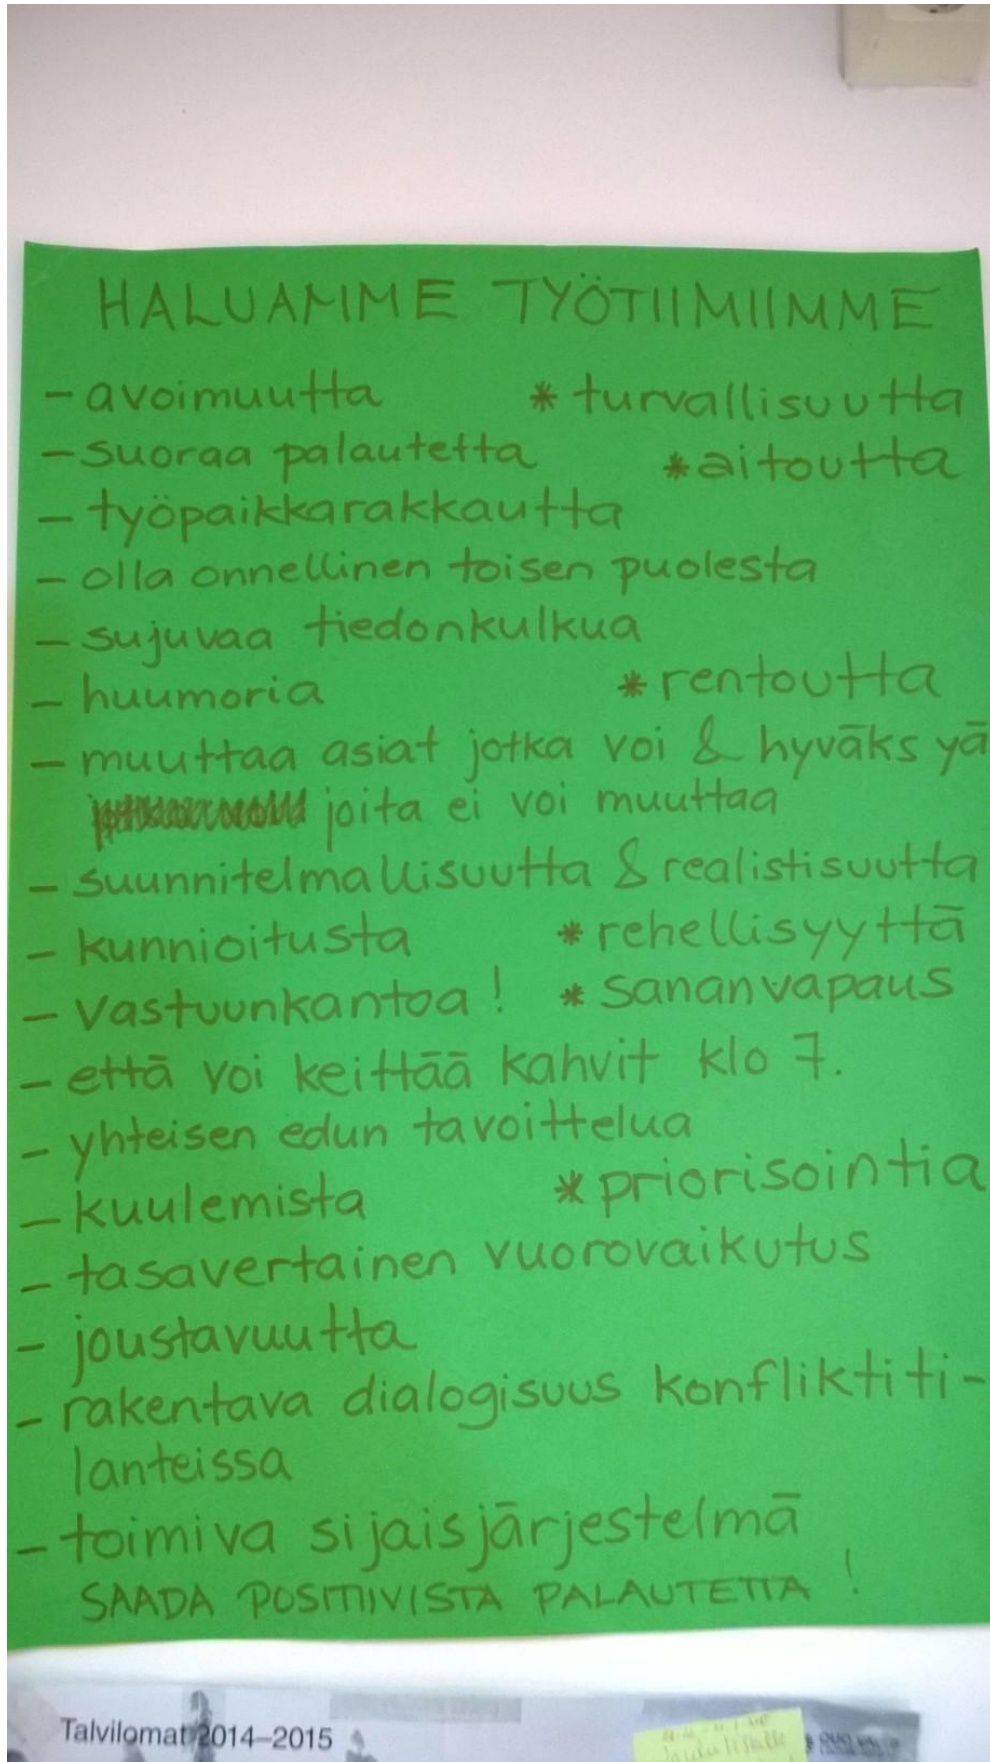 HALUAMME TYÖTIIMIIMME
- avoimuutta * turvallisuutta
- suoraa palautetta * aitoutta
- työpaikkarakkautta
- olla onnellinen toisen puolesta
- sujuvaa tiedonkulkua
- huumoria * rentoutta
- muuttaa asiat jotka voi & hyväksyä
joita ei voi muuttaa
- suunnitelmallisuutta & realistisuutta
- kunnioitusta * rehellisyyttä
- vastuunkantoa ! * sananvapaus
- että voi keittää kahvit klo 7.
- yhteisen edun tavoittelua
- kuulemista * priorisointia
- tasavertainen vuorovaikutus
- joustavuutta
- rakentava dialogisuus konfliktiti-
lanteissa
- toimiva sijaisjärjestelmä
SAADA POSITIIVISTA PALAUTETTA !
Talvilomat 2014–2015